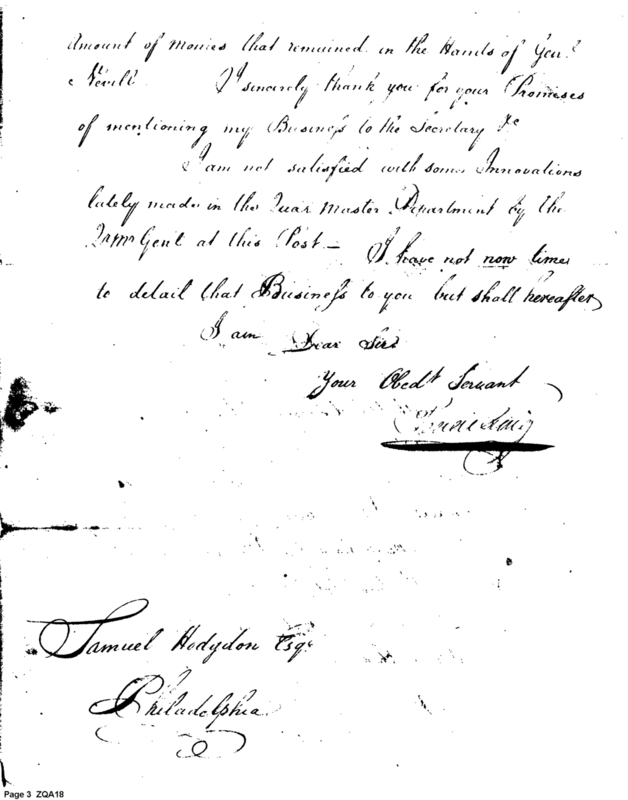 Amount of Monies that remained in the Hands of Genl
Nevill I sincerely thank you for your Promises
of mentioning my Business to the Secretary &c
I am not satisfied with some Innovations
lately made in the Quar Master Department by the
Qr Mr Genl at this Post — I have not now time
to detail that Business to you but shall hereafter
I am Dear Sir
Your Obedt Servant
Isaac Craig
Samuel Hodgdon Esqr
Philadelphia
Page 3 ZQA18